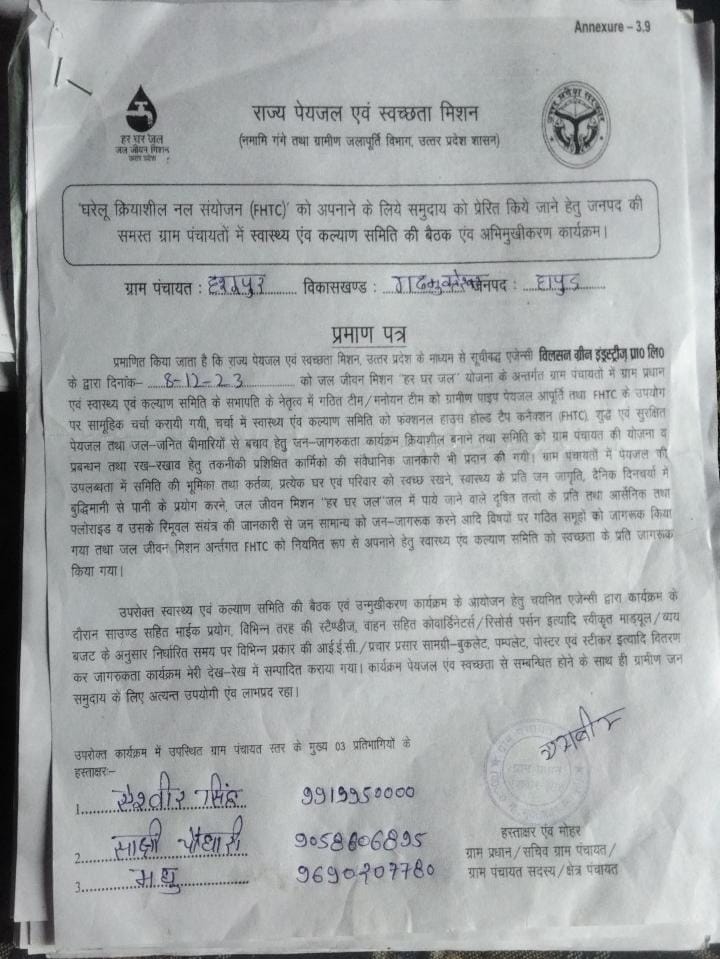 Annexure – 3.9
हर घर जल
जल जीवन मिशन
उत्तर प्रदेश
राज्य पेयजल एवं स्वच्छता मिशन
(नमामि गंगे तथा ग्रामीण जलापूर्ति विभाग, उत्तर प्रदेश शासन)
उत्तर प्रदेश सरकार
'घरेलू क्रियाशील नल संयोजन (FHTC)' को अपनाने के लिये समुदाय को प्रेरित किये जाने हेतु जनपद की
समस्त ग्राम पंचायतों में स्वास्थ्य एंव कल्याण समिति की बैठक एंव अभिमुखीकरण कार्यक्रम।
ग्राम पंचायत : विकासखण्ड : गढमुक्तेश्वर जनपद : हापुड
प्रमाण पत्र
प्रमाणित किया जाता है कि राज्य पेयजल एवं स्वच्छता मिशन, उत्तर प्रदेश के माध्यम से सूचीबद्ध एजेन्सी विलसन ग्रीन इंडस्ट्रीज् प्रा० लि०
के द्वारा दिनांक– 8-12-23 को जल जीवन मिशन "हर घर जल" योजना के अन्तर्गत ग्राम पंचायतों में ग्राम प्रधान
एवं स्वास्थ्य एवं कल्याण समिति के सभापति के नेतृत्व में गठित टीम/मनोयन टीम को ग्रामीण पाइप पेयजल आपूर्ति तथा FHTC के उपयोग
पर सामूहिक चर्चा करायी गयी, चर्चा में स्वास्थ्य एंव कल्याण समिति को फंक्शनल हाउस होल्ड टैप कनेक्शन (FHTC), शुद्ध एवं सुरक्षित
पेयजल तथा जल-जनित बीमारियों से बचाव हेतु जन-जागरुकता कार्यक्रम क्रियाशील बनाने तथा समिति को ग्राम पंचायत की योजना व
प्रबन्धन तथा रख-रखाव हेतु तकनीकी प्रशिक्षित कार्मिको की संवैधानिक जानकारी भी प्रदान की गयी। ग्राम पंचायतों में पेयजल की
उपलब्धता में समिति की भूमिका तथा कर्तव्य, प्रत्येक घर एवं परिवार को स्वच्छ रखने, स्वास्थ्य के प्रति जन जागृति, दैनिक दिनचर्या में
बुद्धिमानी से पानी के प्रयोग करने, जल जीवन मिशन "हर घर जल"जल में पाये जाने वाले दूषित तत्वो के प्रति तथा आर्सेनिक तथा
फ्लोराइड व उसके रिमूवल संयंत्र की जानकारी से जन सामान्य को जन-जागरूक करने आदि विषयों पर गठित समूहों को जागरूक किया
गया तथा जल जीवन मिशन अर्न्तगत FHTC को नियमित रूप से अपनाने हेतु स्वास्थ्य एंव कल्याण समिति को स्वच्छता के प्रति जागरूक
किया गया।
उपरोक्त स्वास्थ्य एवं कल्याण समिति की बैठक एवं उन्मुखीकरण कार्यक्रम के आयोजन हेतु चयनित एजेन्सी द्वारा कार्यक्रम के
दौरान साउण्ड सहित माईक प्रयोग, विभिन्न तरह की स्टैण्डीज, वाहन सहित कोवार्डिनेटर्स/रिसोर्स पर्सन इत्यादि स्वीकृत माडयूल/व्यय
बजट के अनुसार निर्धारित समय पर विभिन्न प्रकार की आई.ई.सी./प्रचार प्रसार सामग्री–बुकलेट, पम्पलेट, पोस्टर एवं स्टीकर इत्यादि वितरण
कर जागरुकता कार्यक्रम मेरी देख-रेख में सम्पादित कराया गया। कार्यक्रम पेयजल एंव स्वच्छता से सम्बन्धित होने के साथ ही ग्रामीण जन
समुदाय के लिए अत्यन्त उपयोगी एंव लाभप्रद रहा।
उपरोक्त कार्यक्रम में उपस्थित ग्राम पंचायत स्तर के मुख्य 03 प्रतिभागियों के
हस्ताक्षरः–
1. सिंह 9919950000
2. साक्षी चौधरी 9058606895
3. मधु 9690207780
हस्ताक्षर एंव मोहर
ग्राम प्रधान/सचिव ग्राम पंचायत/
ग्राम पंचायत सदस्य/क्षेत्र पंचायत